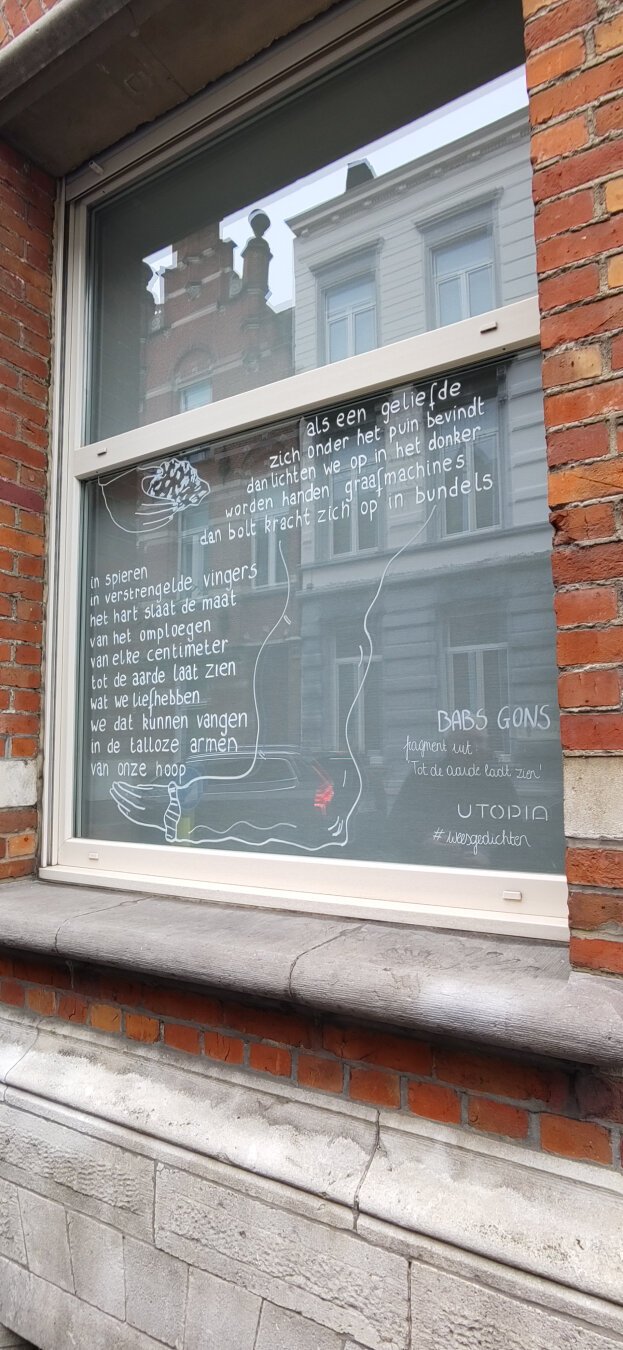 als een geliefde
zich onder het puin bevindt
dan lichten we op in het donker
worden handen graafmachines
dan bolt kracht zich op in bundels
in spieren
in verstrengelde vingers
het hart slaat de maat
van het omploegen
van elke centimeter
tot de aarde laat zien
wat we liefhebben
we dat kunnen vangen
in de talloze armen
van onze hoop
BABS GONS
fragment uit:
'Tot de aarde laat zien'
UTOPIA
#weesgedichten